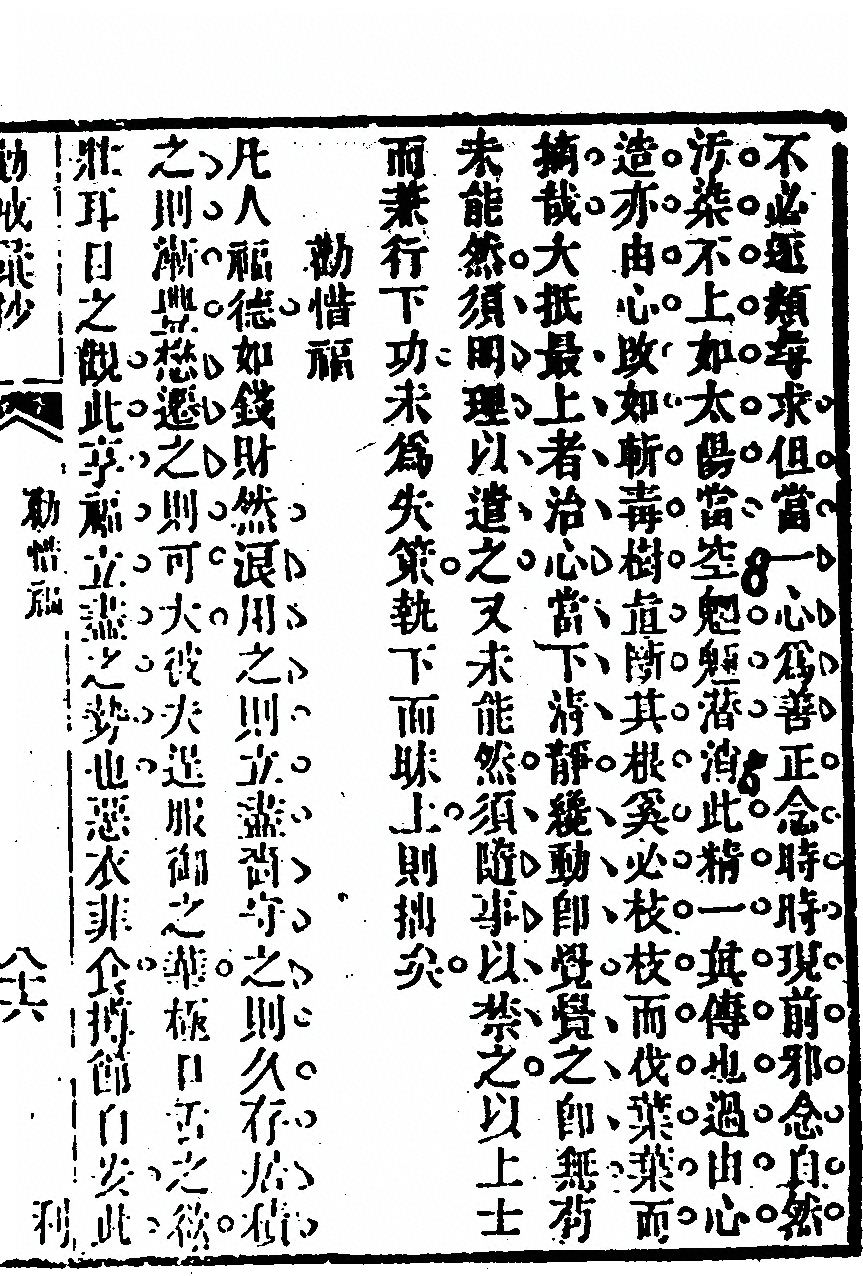 不必逐類尋求但當一心為善正念時時現前邪念自然
汚染不上如太陽當空魍魎潛消此精一真傳也過由心
造亦由心改如斬毒樹直斷其根奚必枝枝而伐葉葉而
摘哉大抵最上者治心當下清靜纔動即覺覺之即無苟
未能然須明理以遣之又未能然須隨事以禁之以上士
而兼行下功未為失策執下而昧上則拙矣
勸惜福
凡人福德如錢財然浪用之則立盡嗇守之則久存居積
之則漸豐懋遷之則可大彼夫逞服御之華極口舌之欲
壯耳目之觀此享福立盡之勢也惡衣菲食撙節自安此
勸戒彙抄
勸惜福
八十六
利